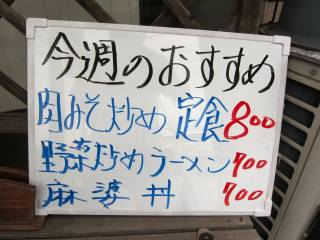 今週のおすすめ
肉みそ炒め 定食 800
野菜炒めラーメン 700
麻婆丼 700